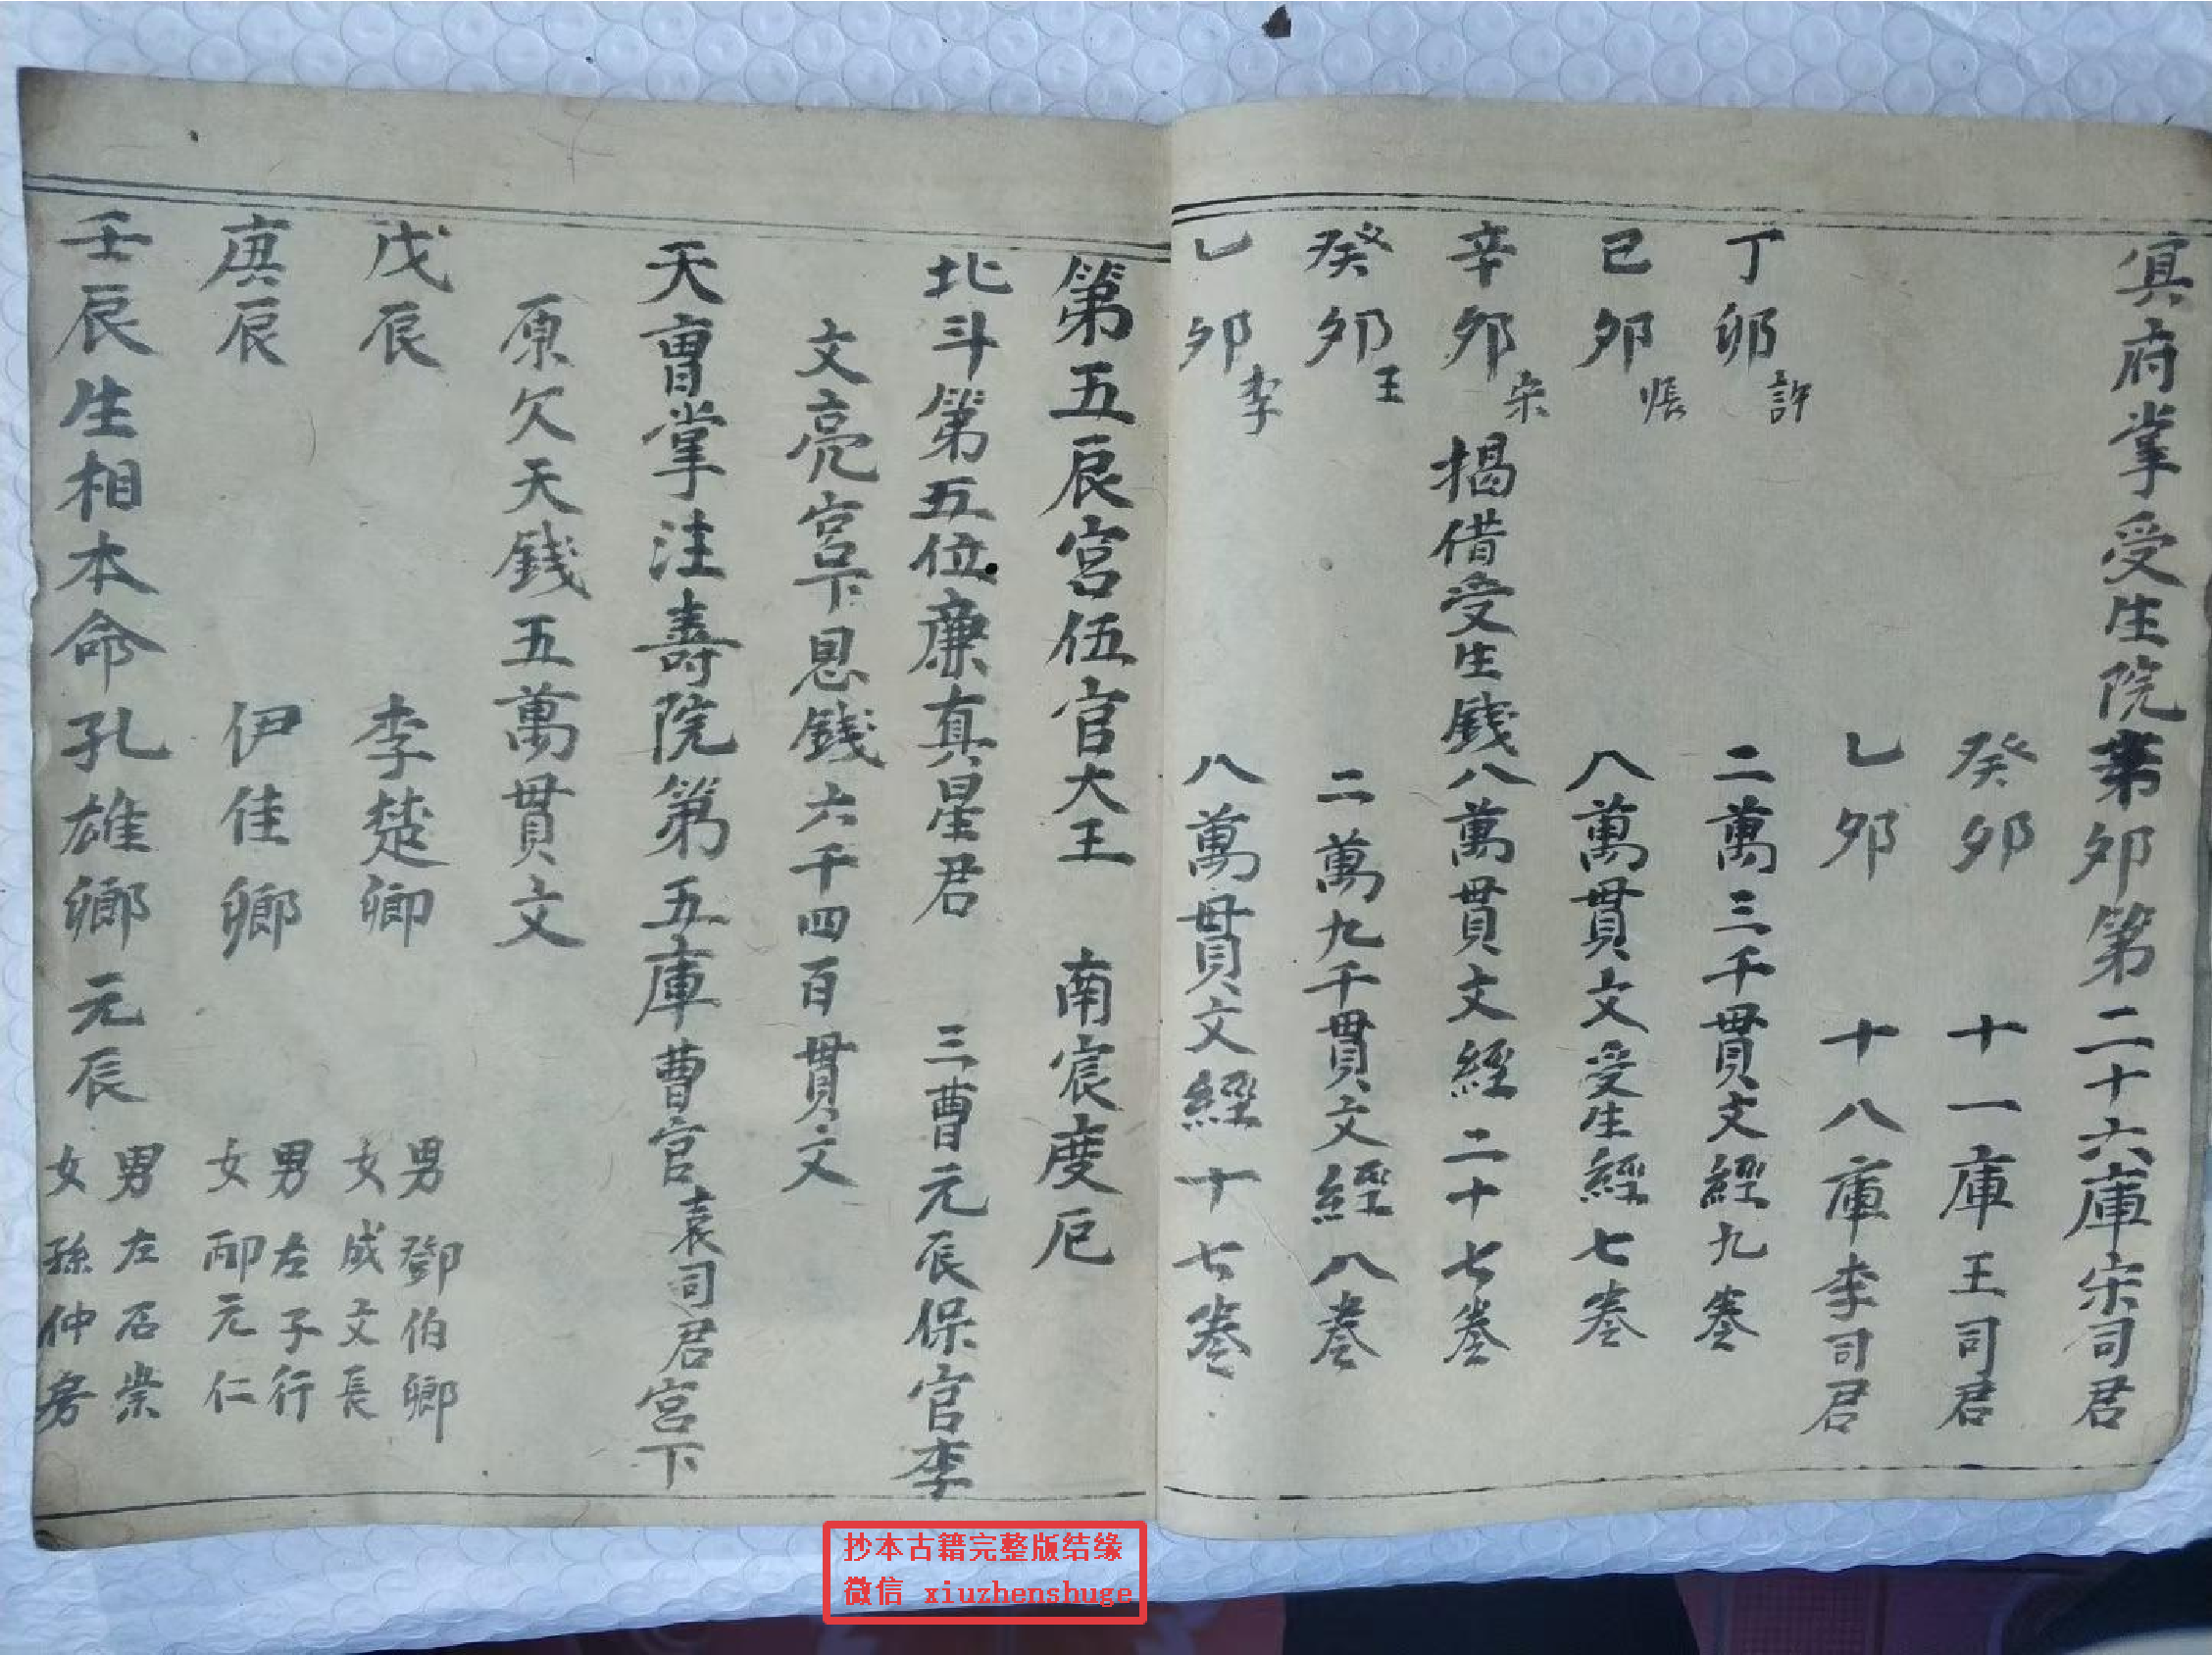 冥府掌受生院辛夘第二十六庫宋司君
癸夘 十一庫王司君
乚夘 十八庫李司君
丁卯許 二萬三千貫文經九卷
已夘悵 八萬貫文受生經七卷
辛夘宋 揭借受生錢八萬貫文經二十七卷
癸夘王 二萬九千貫文經八卷
乚夘李 八萬貫文經十七卷
第五辰宮伍官大王 南宸度厄
北斗第五位廉真星君 三曹元辰保官李
文亮宮下恩錢六千四百貫文
天曹掌注壽院第五庫曹官袁司君宮下
原欠天錢五萬貫文
戊辰 李楚卿 男鄧伯卿 女成文長
庚辰 伊佳卿 男左子行 女邴元仁
壬辰生相本命孔雄卿元辰 男左石崇 女孫仲房
抄本古籍完整版结缘
微信 xiuzhenshuge